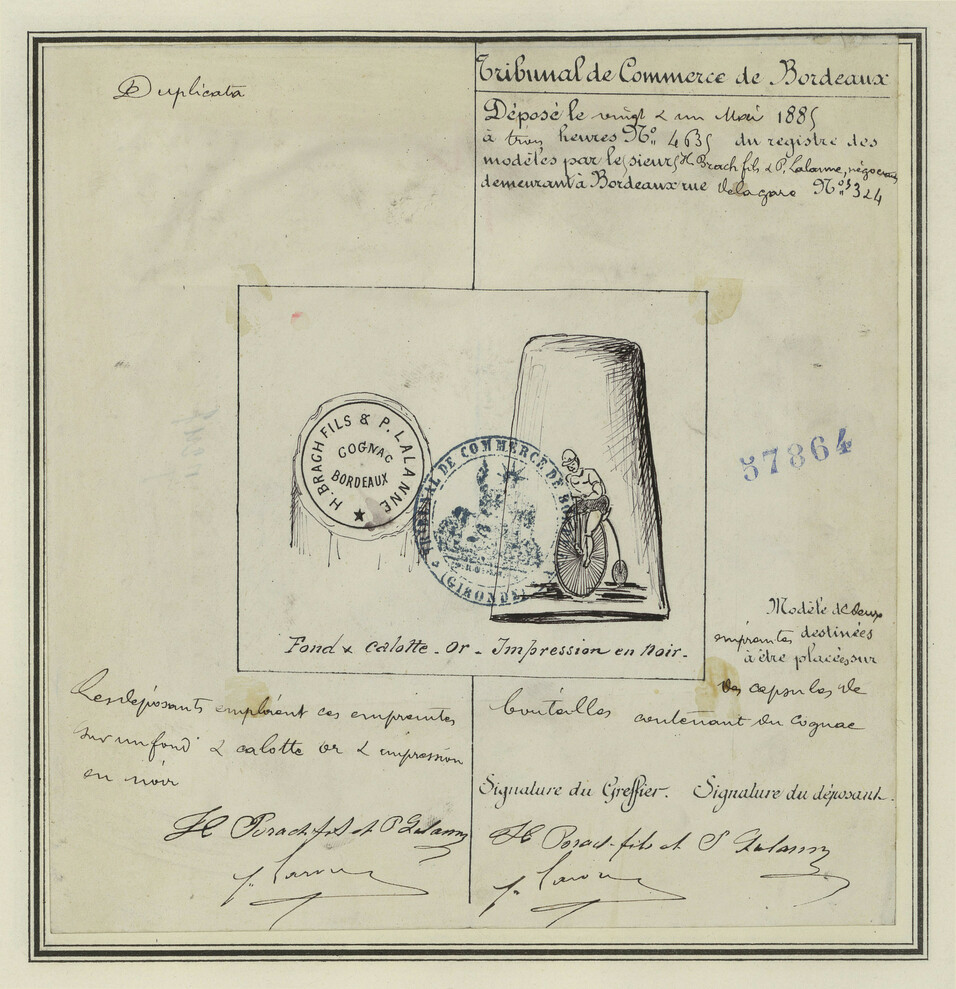 Duplicata
Tribunal de Commerce de Bordeaux
Déposé le vingt & un Mai 1885
à trois heures No. 4635 du registre des
modèles par le sieurs H. Brach fils & P. Lalanne, négociants
demeurant à Bordeaux rue de la gare Nos 324
H. BRACH FILS & P. LALANNE
COGNAC
BORDEAUX
TRIBUNAL DE COMMERCE DE BO
(GIRONDE)
57864
Fond & Calotte - Or - Impression en Noir.
Modèle de deux
empreintes destinées
à être placées sur
des capsules de
bouteilles contenant du Cognac
Les déposants emploient ces empreintes
sur un fond & calotte or & impression
en noir
Signature du Greffier. Signature du déposant.
H Brach fils et P Lalanne
H Brach fils et P Lalanne